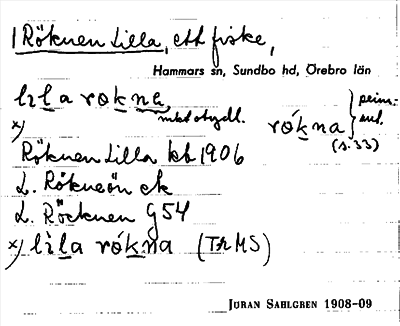 1 Röknen Lilla, ett fiske,
Hammars sn, Sundbo hd, Örebro län
lila rokna, mkt otydl. rókna (s. 33)
x)
Röknen Lilla kb 1906
L. Rökneön ek
L. Röcknen G54
x) lìla rókna (ThMS)
JÖRAN SAHLGREN 1908-09